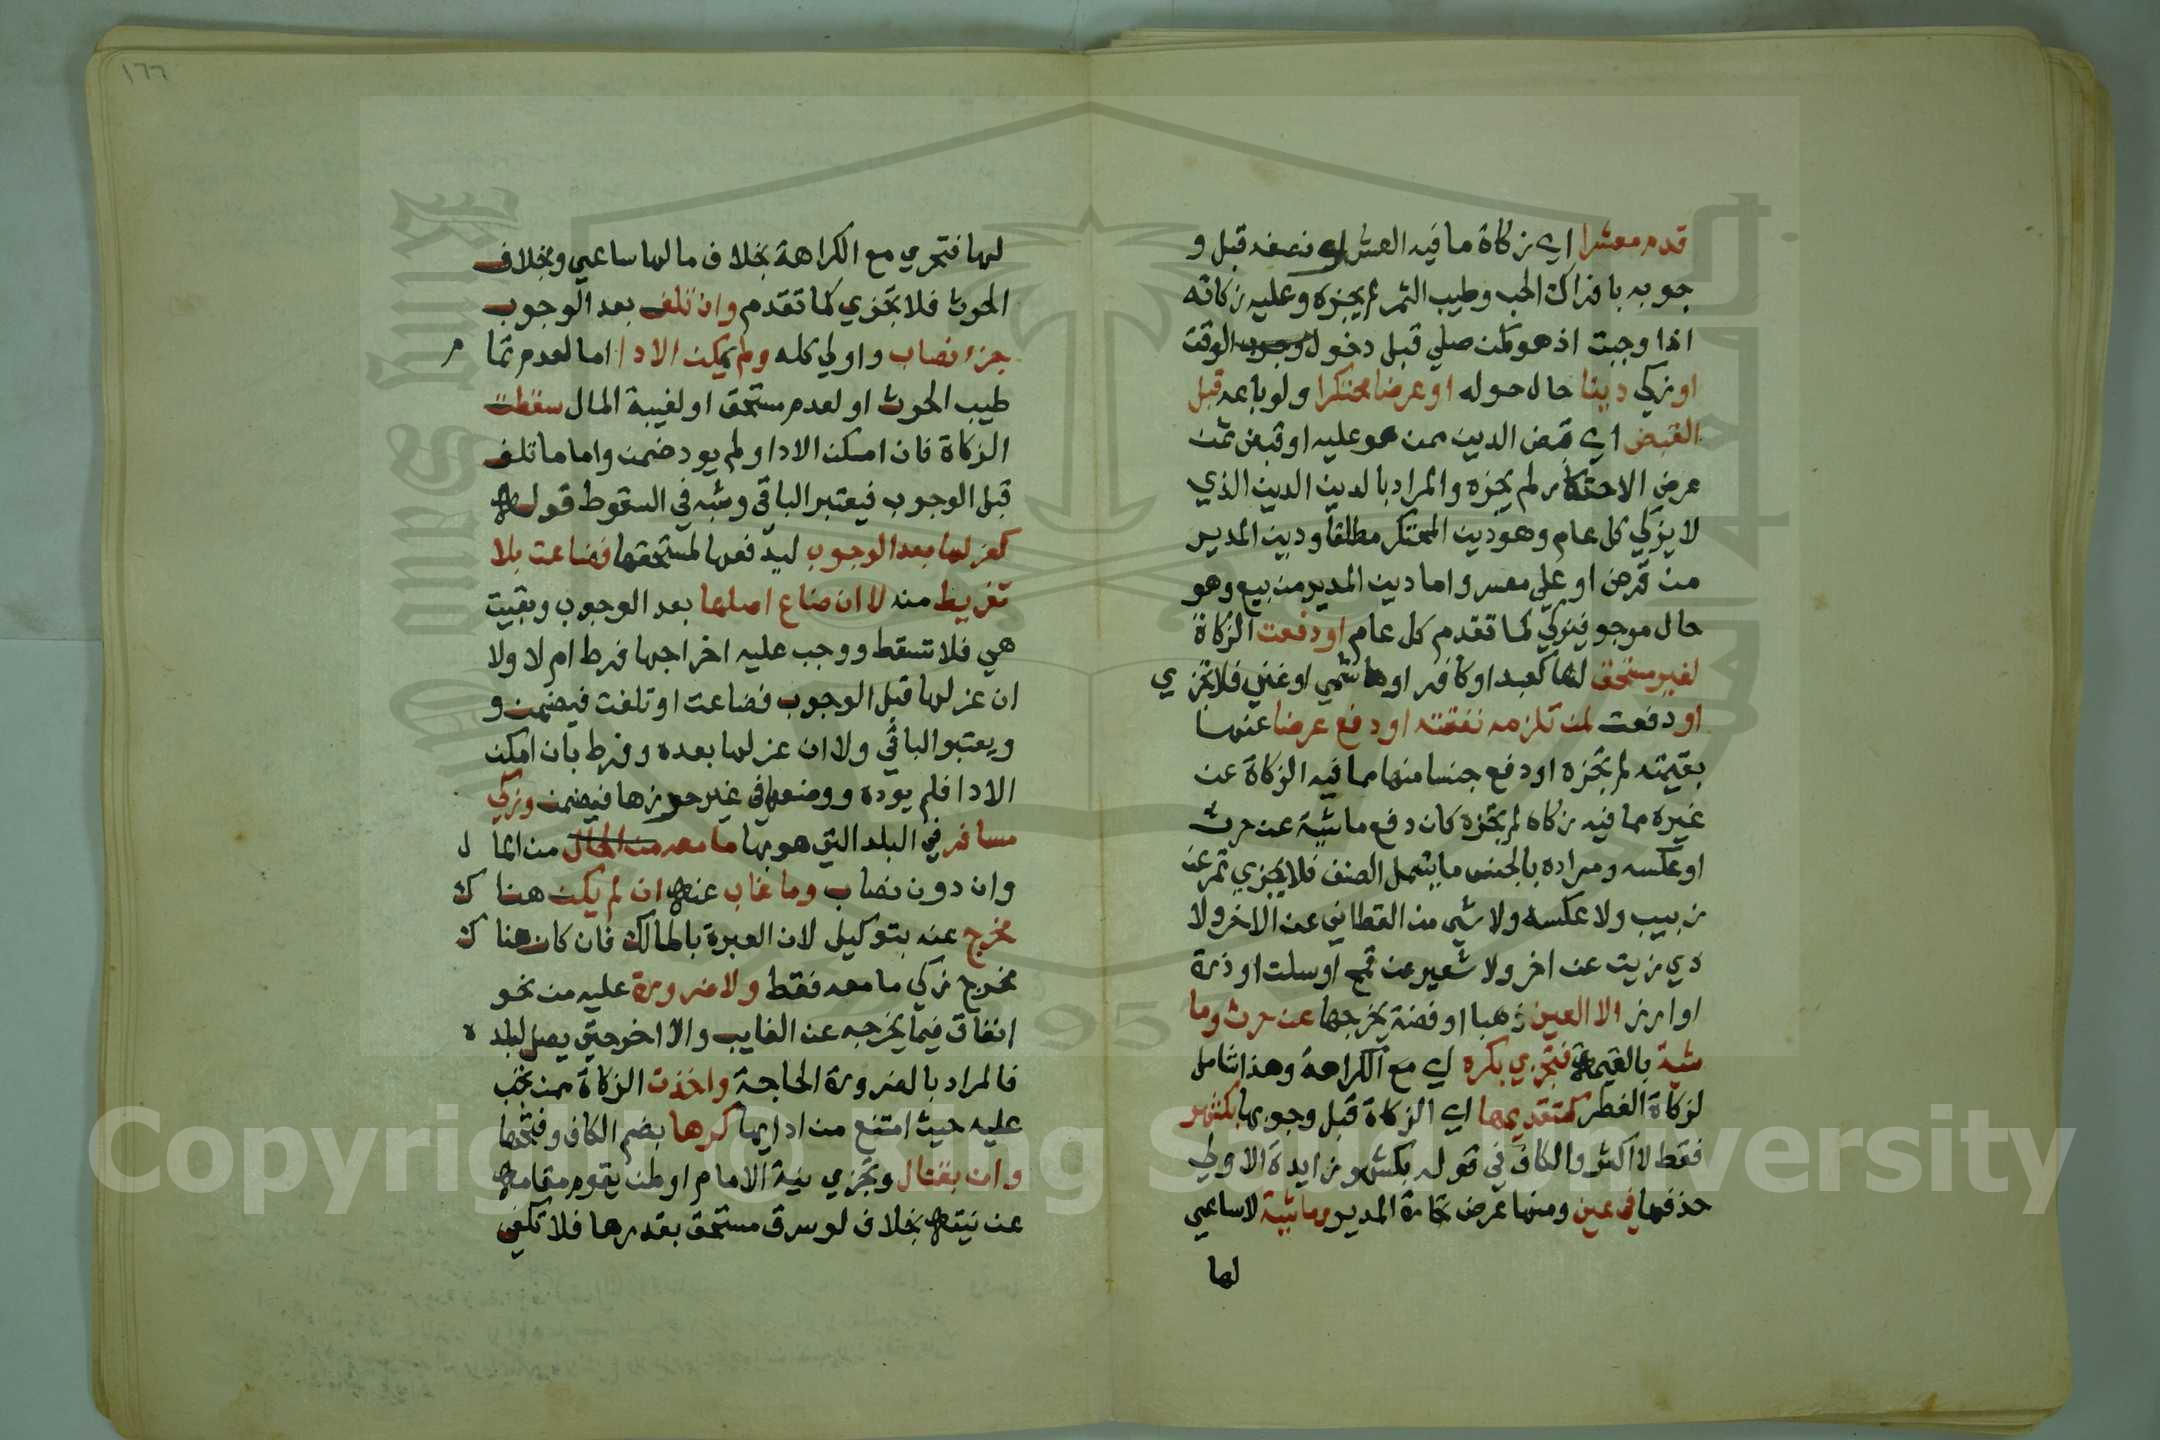 قدم معشرا اي زكاة ما فيه العشر او نصفه قبل و
جوبه بافراك الحب وطيب الثمر لم يجزه وعليه زكاته
اذا وجبت اذ هو كمن صلي قبل دخول وجوب الوقت
او زكي دينا حال حوله او عرضا محتكرا ولو باعه قبل
القبض اي قبض الدين ممن هو عليه او قبض ثمن
عرض الاحتكار لم يجزه والمراد بالدين الدين الذي
لا يزكي كل عام وهو دين المحتكر مطلقا ودين المدير
من قرض او علي معسر واما دين المدير من بيع وهو
حال مرجو فيزكي كما تقدم كل عام او دفعت الزكاة
لغير مستحق لها كعبد او كافر او هاشمي او غني فلا تجزي
او دفعت لمن تلزمه نفقته او دفع عرضا عنها
بقيمته لم تجزه او دفع جنسا منها مما فيه الزكاة عن
غيره مما فيه زكاه لم تجزه كان دفع ماشية عن حرث
او عكسه ومراده بالجنس ما يشمل الصنف فلا يجزي تمر عن
زبيب ولا عكسه ولا شي من القطاني عن الاخر ولا
ذي زيت عن اخر ولا شعير عن قمح او سلت او ذرة
او ارز الا العين ذهبا او فضة يخرجها عن حرث وما
شية بالقيمة فتجزي بكره اي مع الكراهة وهذا شامل
لزكاة الفطر كتقديمها اي الزكاة قبل وجوبها بكشهر
فقط لا اكثر والكاف في قوله بكشهر زايدة الاولي
حذفها في عين ومنها عرض تجارة المدير وماشية لا ساعي
لها
١٦٦
لها فتجزي مع الكراهة بخلاف ما لها ساعي وبخلاف
الحرث فلا تجزي كما تقدم وان تلف بعد الوجوب
جزء نصاب واولي كله ولم يمكن الادا اما لعدم تمام
طيب الحرث او لعدم مستحق او لغيبة المال سقطت
الزكاة فان امكن الادا ولم يود ضمن واما ما تلف
قبل الوجوب فيعتبر الباقي وشبه في السقوط قوله
كعزلها بعد الوجوب ليدفعها لمستحقها فضاعت بلا
تفريط منه لا ان ضاع اصلها بعد الوجوب وبقيت
هي فلا تسقط ووجب عليه اخراجها فرط ام لا ولا
ان عزلها قبل الوجوب فضاعت او تلفت فيضمن و
ويعتبر الباقي ولا ان عزلها بعده وفرط بان امكن
الادا فلم يوده ووضعها في غير حرزها فيضمن وزكي
مسافر في البلد التي هو بها ما معه من المال من المال
وان دون نصاب وما غاب عنه ان لم يكن هناك
مخرج عنه بتوكيل لان العبرة بالمالك فان كان هناك
مخرج زكي ما معه فقط ولا ضرورة عليه من نحو
انفاق فيما يخرجه عن الغايب والا اخر حتي يصل لبلده
فالمراد بالضرورة الحاجة واخذت الزكاة ممن تجب
عليه حيث امتنع من ادايها كرها بضم الكاف وفتحها
وان بقتال وتجزي نية الامام او لمن يقوم مقامه
عن نيته بخلاف لو سرق مستحق بقدرها فلا تكفي
Copyright © King Saud University